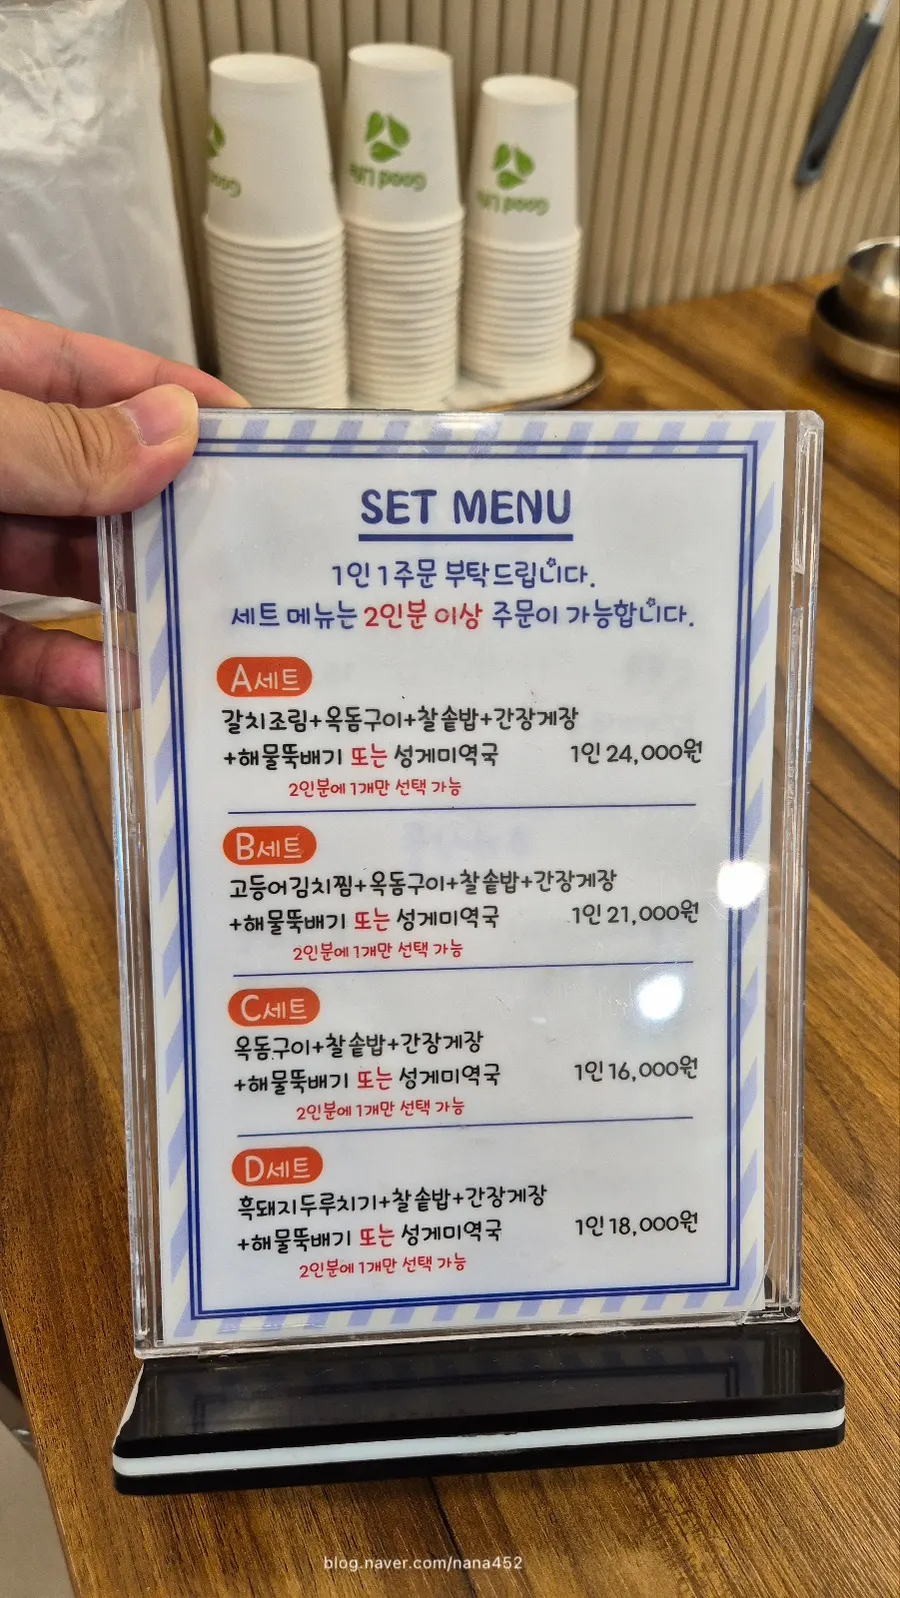 Good Life
Good Life
SET MENU
1인 1주문 부탁드립니다.
세트 메뉴는 2인분 이상 주문이 가능합니다.
A세트
갈치조림+옥돔구이+찰솥밥+간장게장
+해물뚝배기 또는 성게미역국 1인 24,000원
2인분에 1개만 선택 가능
B세트
고등어김치찜+옥돔구이+찰솥밥+간장게장
+해물뚝배기 또는 성게미역국 1인 21,000원
2인분에 1개만 선택 가능
C세트
옥돔구이+찰솥밥+간장게장
+해물뚝배기 또는 성게미역국 1인 16,000원
2인분에 1개만 선택 가능
D세트
흑돼지두루치기+찰솥밥+간장게장
+해물뚝배기 또는 성게미역국 1인 18,000원
2인분에 1개만 선택 가능
blog.naver.com/nana452